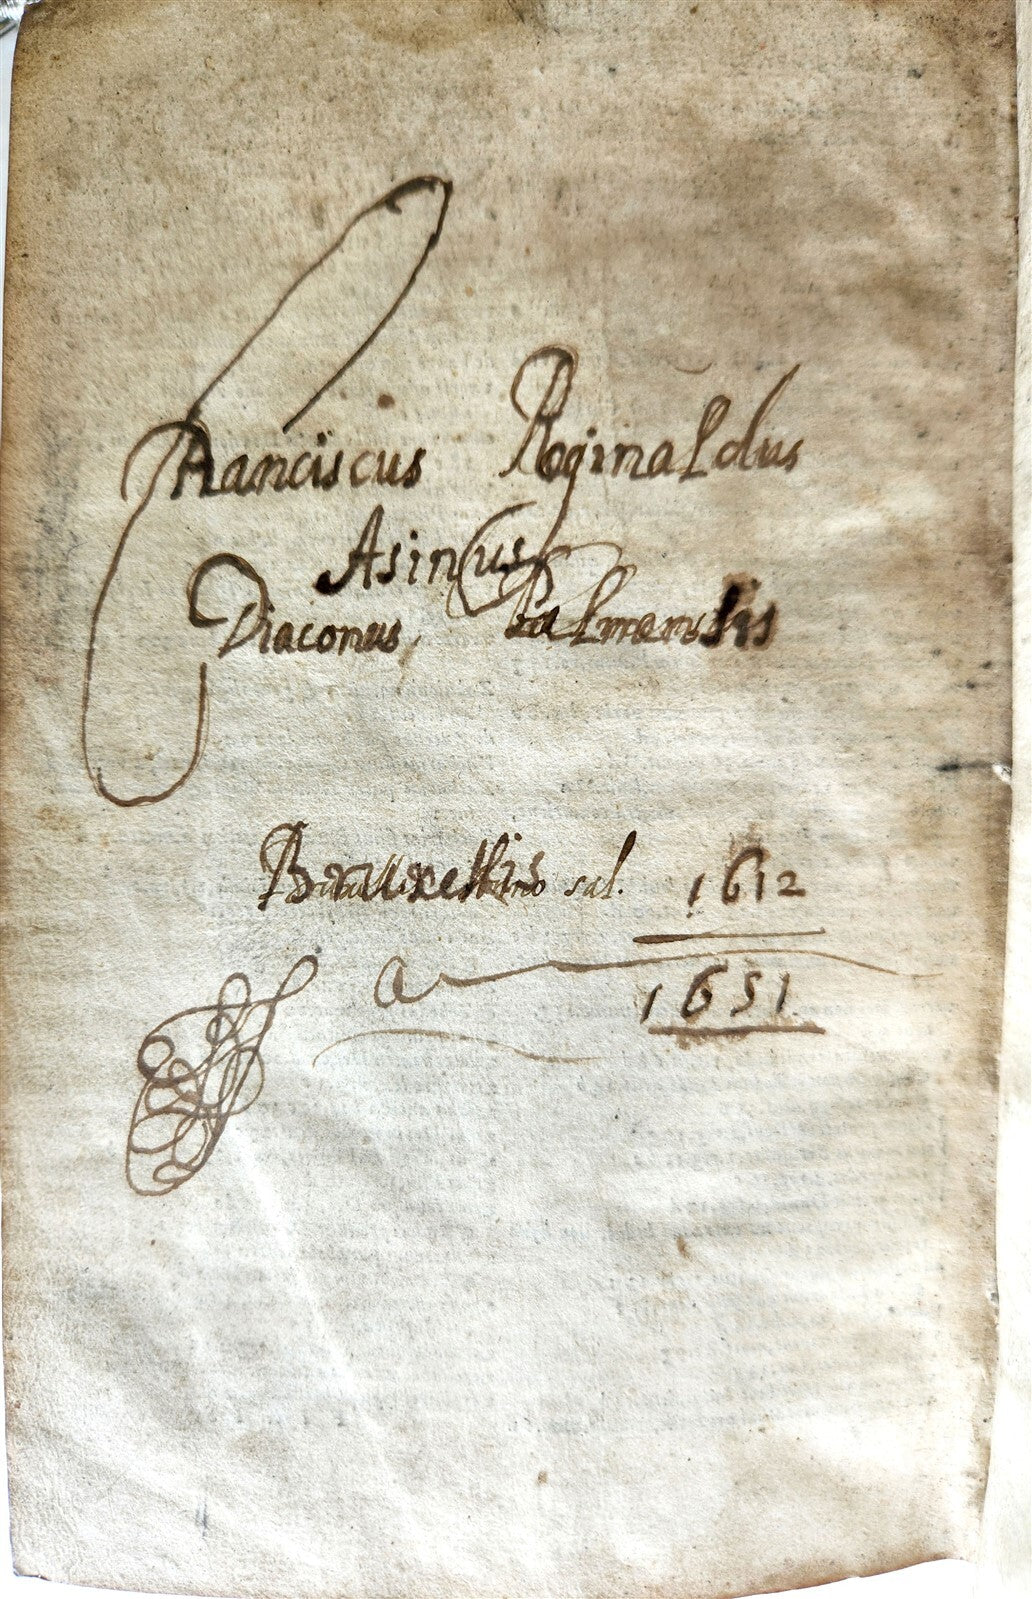 Franciscus Reginaldus
Asinus
Diaconus, Palmensis
Bruxellis sal. 1612
1651